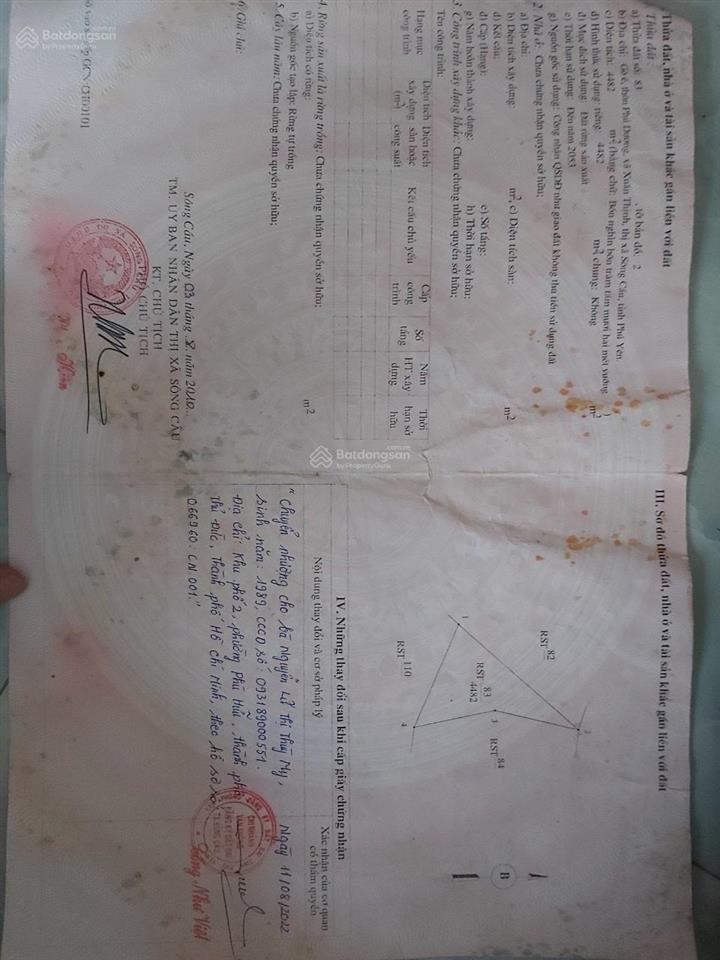 Thửa đất, nhà ở và tài sản khác gắn liền với đất
Thửa đất:
a) Thửa đất số: 83 , tờ bản đồ: 2
b) Địa chỉ: thôn Phú Dương, xã Xuân Thịnh, thị xã Sông Cầu, tỉnh Phú Yên.
c) Diện tích: 4482 m², (bằng chữ: Bốn nghìn bốn trăm tám mươi hai mét vuông )
d) Hình thức sử dụng: riêng: 4482 m²; chung: Không m²
đ) Mục đích sử dụng: Đất rừng sản xuất
e) Thời hạn sử dụng: Đến năm 2053
g) Nguồn gốc sử dụng: Công nhận QSDĐ như giao đất không thu tiền sử dụng đất
2. Nhà ở: Chưa chứng nhận quyền sở hữu;
a) Địa chỉ:
b) Diện tích xây dựng: m², c) Diện tích sàn: m²
d) Kết cấu: e) Số tầng:
đ) Cấp (Hạng):
g) Năm hoàn thành xây dựng: h) Thời hạn sở hữu:
3. Công trình xây dựng khác: Chưa chứng nhận quyền sở hữu;
Tên công trình:
Hạng mục công trình
Diện tích xây dựng (m²)
Diện tích sàn hoặc công suất
Kết cấu chủ yếu
Cấp công trình
Số tầng
Năm HT.xây dựng
Thời hạn sở hữu
4. Rừng sản xuất là rừng trồng: Chưa chứng nhận quyền sở hữu;
a) Diện tích có rừng: m²
b) Nguồn gốc tạo lập: Rừng tự trồng
5. Cây lâu năm: Chưa chứng nhận quyền sở hữu;
6. Ghi chú:
Sông Cầu, Ngày 03 tháng năm 2010
TM. ỦY BAN NHÂN DÂN THỊ XÃ SÔNG CẦU
KT. CHỦ TỊCH
PHÓ CHỦ TỊCH
III. Sơ đồ thửa đất, nhà ở và tài sản khác gắn liền với đất
B
RST 82
RST 83
4482
RST 84
RST 110
1
2
3
4
IV. Những thay đổi sau khi cấp giấy chứng nhận
Nội dung thay đổi và cơ sở pháp lý
Xác nhận của cơ quan có thẩm quyền
"Chuyển nhượng cho bà Nguyễn Lữ Thị Thùy My,
sinh năm: 1989, CCCD số: 093189000551.
Địa chỉ: Khu phố 2, phường Phú Hữu, thành phố
Thủ Đức, Thành phố Hồ Chí Minh, theo hồ sơ số
066960. CN 001."
Ngày 11/08/2022
Batdongsan
by PropertyGuru
Batdongsan
by PropertyGuru
Batdongsan
by PropertyGuru